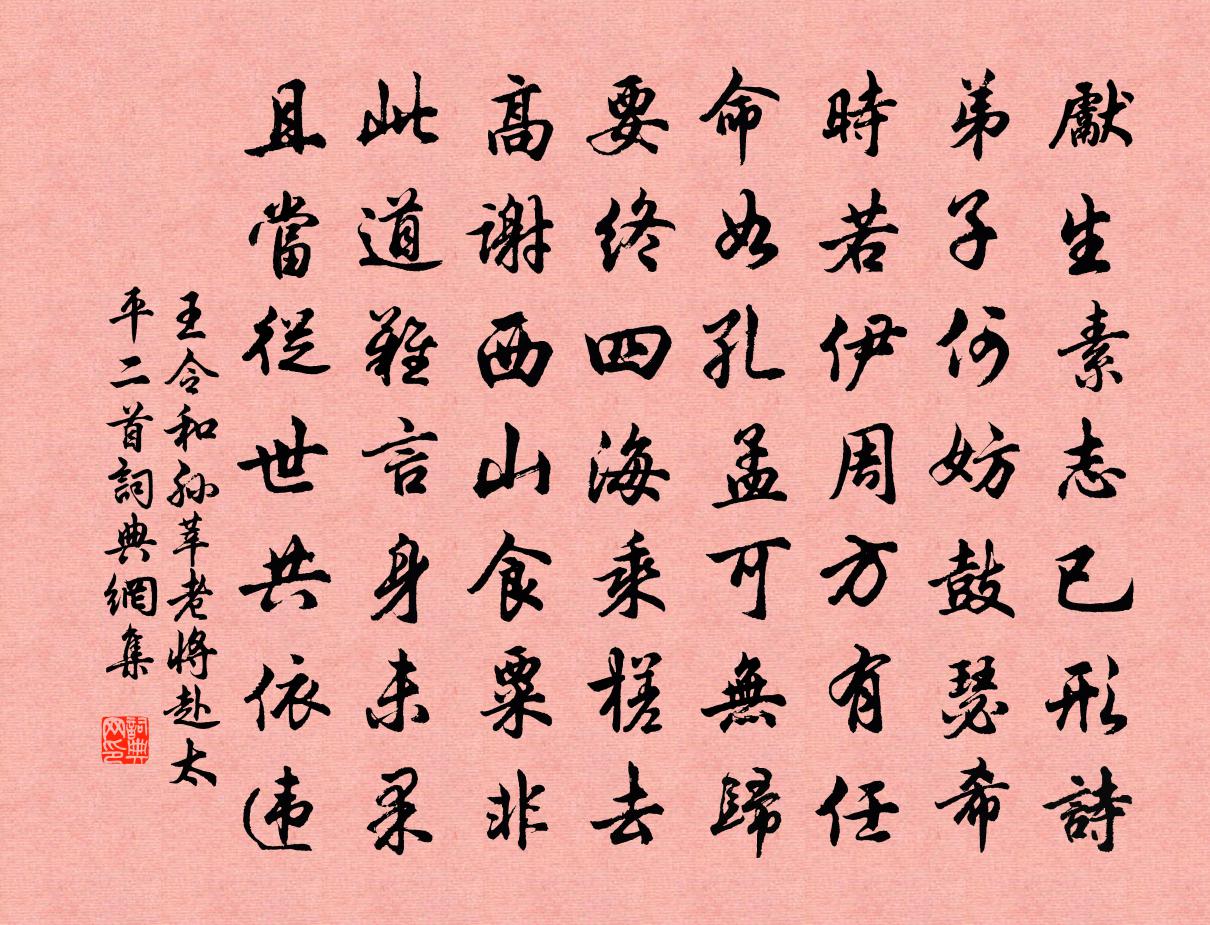 獻生素志已形詩
弟子何妨鼓瑟希
時若伊周方有任
命如孔孟可無歸
要終四海乘槎去
高謝西山食粟非
此道難言身未果
且當從世共依违
王令和孙莘老將赴太
平二首詞典網集
詞典网印